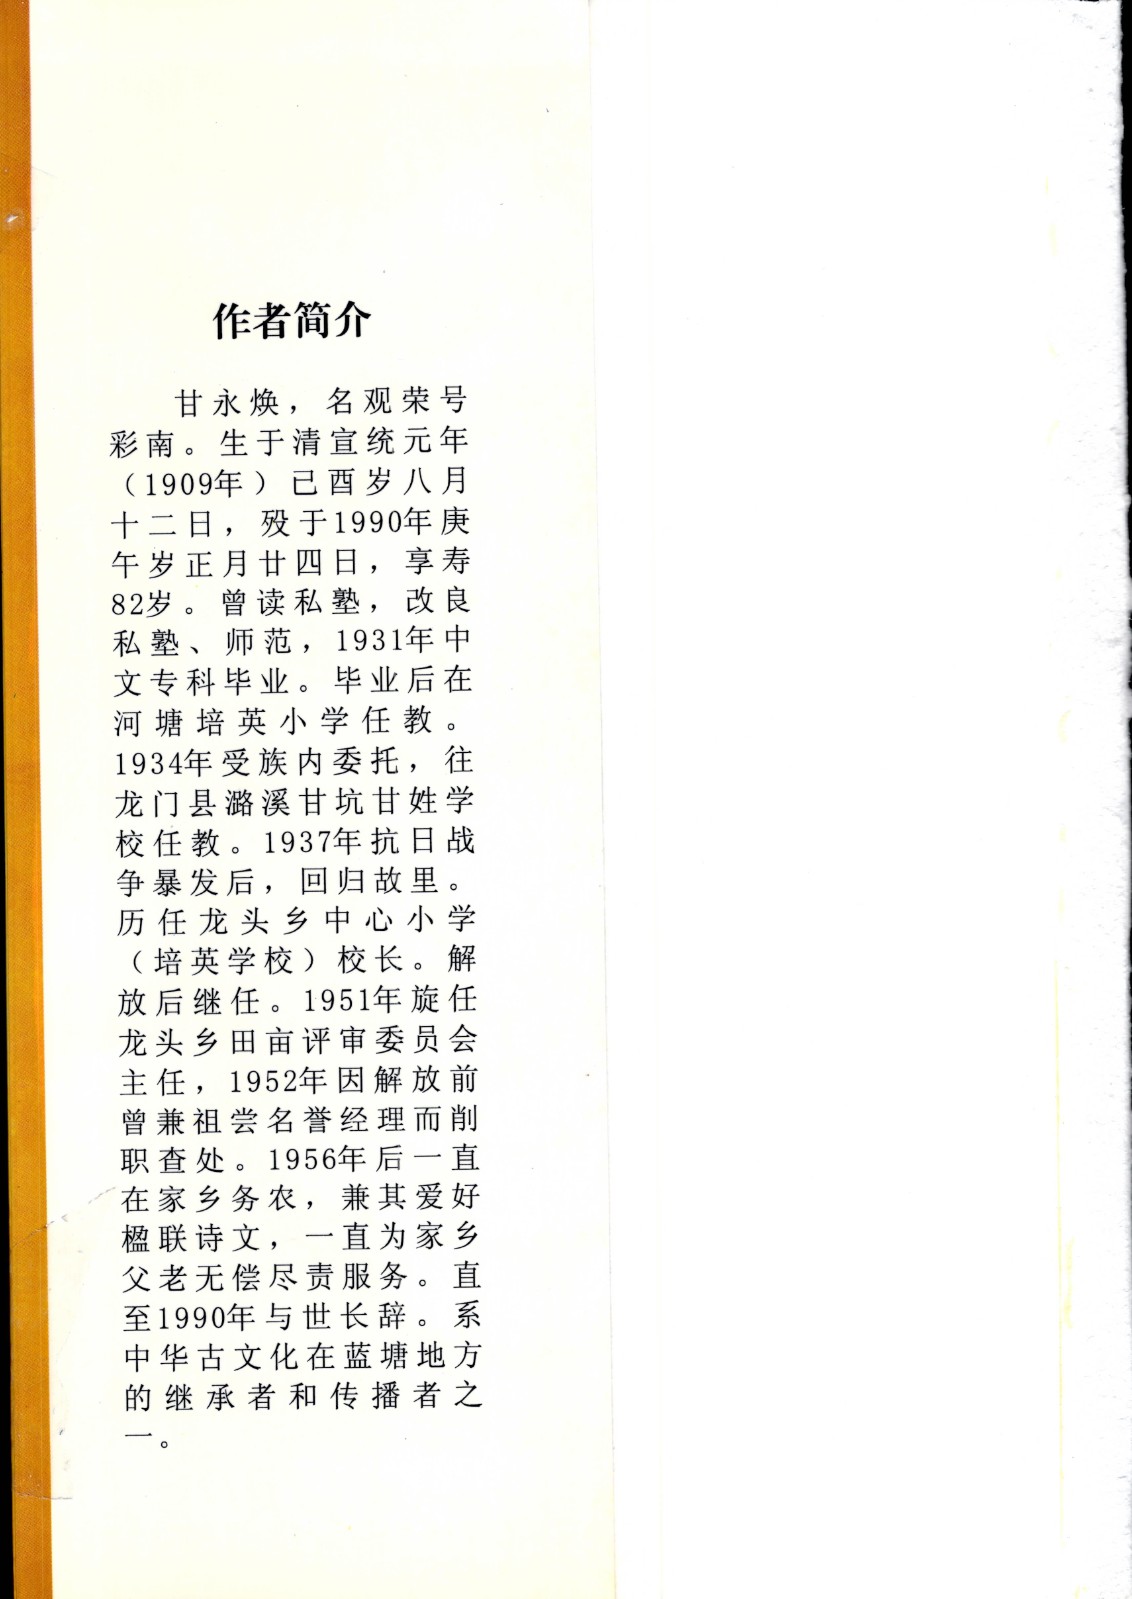 作者简介
甘永焕，名观荣号
彩南。生于清宣统元年
（1909年）己酉岁八月
十二日，殁于1990年庚
午岁正月廿四日，享寿
82岁。曾读私塾，改良
私塾、师范，1931年中
文专科毕业。毕业后在
河塘培英小学任教。
1934年受族内委托，往
龙门县潞溪甘坑甘姓学
校任教。1937年抗日战
争暴发后，回归故里。
历任龙头乡中心小学
（培英学校）校长。解
放后继任。1951年旋任
龙头乡田亩评审委员会
主任，1952年因解放前
曾兼祖尝名誉经理而削
职查处。1956年后一直
在家乡务农，兼其爱好
楹联诗文，一直为家乡
父老无偿尽责服务。直
至1990年与世长辞。系
中华古文化在蓝塘地方
的继承者和传播者之
一。